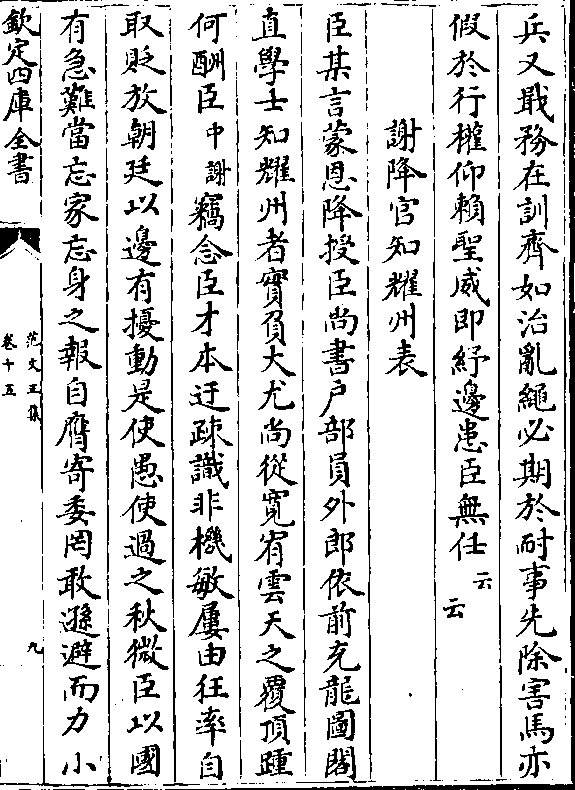 兵又戢務在訓齊如治亂繩必期於耐事先除害馬亦
假於行權仰賴聖威即紓邊患臣無任云云
謝降官知耀州表
臣某言蒙恩降授臣尚書戶部員外郎依前充龍圖閣
直學士知耀州者實負大尤尚從寬宥雲天之覆頂踵
何酬臣中謝竊念臣才本迂疎識非機敏屢由狂率自
取貶放朝廷以邊有擾動是使愚使過之秋微臣以國
有急難當忘家忘身之報自膺寄委罔敢遜避而力小
欽定四庫全書
范文正集
卷十五
九